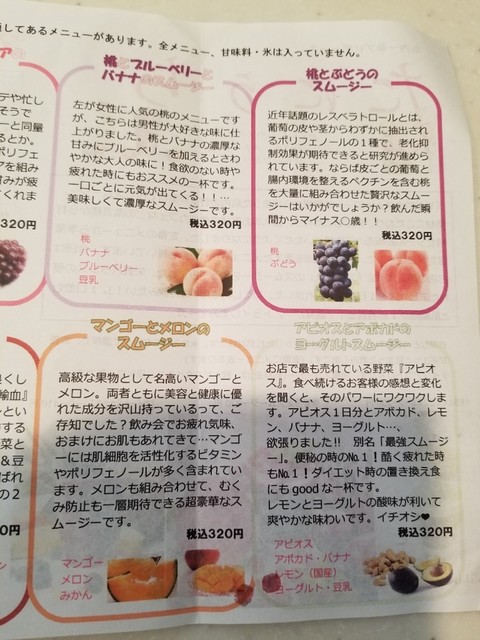 してあるメニューがあります。全メニュー、甘味料・氷は入っていません。
桃とブルーベリーと
バナナのスムージー
左が女性に人気の桃のメニューです
が、こちらは男性が大好きな味に仕
上がりました。桃とバナナの濃厚な
甘みにブルーベリーを加えるとさわ
やかな大人の味に！食欲のない時や
疲れた時にもおススメの一杯です。
一口ごとに元気が出てくる！！…
美味しくて濃厚なスムージーです。
税込320円
桃
バナナ
ブルーベリー
豆乳
桃とぶどうの
スムージー
近年話題のレスベラトロールとは、
葡萄の皮や茎からわずかに抽出され
るポリフェノールの１種で、老化抑
制効果が期待できると研究が進めら
れています。ならば皮ごとの葡萄と
腸内環境を整えるペクチンを含む桃
を大量に組み合わせた贅沢なスムー
ジーはいかがでしょうか？飲んだ瞬
間からマイナス○歳！！
税込320円
桃
ぶどう
マンゴーとメロンの
スムージー
高級な果物として名高いマンゴーと
メロン。両者ともに美容と健康に優
れた成分を沢山持っているって、ご
存知でした？飲み会でお疲れ気味、
おまけにお肌もあれてきて…マンゴ
ーには肌細胞を活性化するビタミン
やポリフェノールが多く含まれてい
ます。メロンも組み合わせて、むく
み防止も一層期待できる超豪華なス
ムージーです。
税込320円
マンゴー
メロン
みかん
アピオスとアボカドの
ヨーグルトスムージー
お店で最も売れている野菜『アピオ
ス』。食べ続けるお客様の感想と変化
を聞くと、そのパワーにワクワクしま
す。アピオス１日分とアボカド、レモ
ン、バナナ、ヨーグルト…、
欲張りました!! 別名「最強スムージ
ー」。便秘の時のNo.1！酷く疲れた時
もNo.1！ダイエット時の置き換え食
にも good な一杯です。
レモンとヨーグルトの酸味が利いて
爽やかな味わいです。イチオシ♥
税込320円
アピオス
アボカド・バナナ
レモン（国産）
ヨーグルト・豆乳